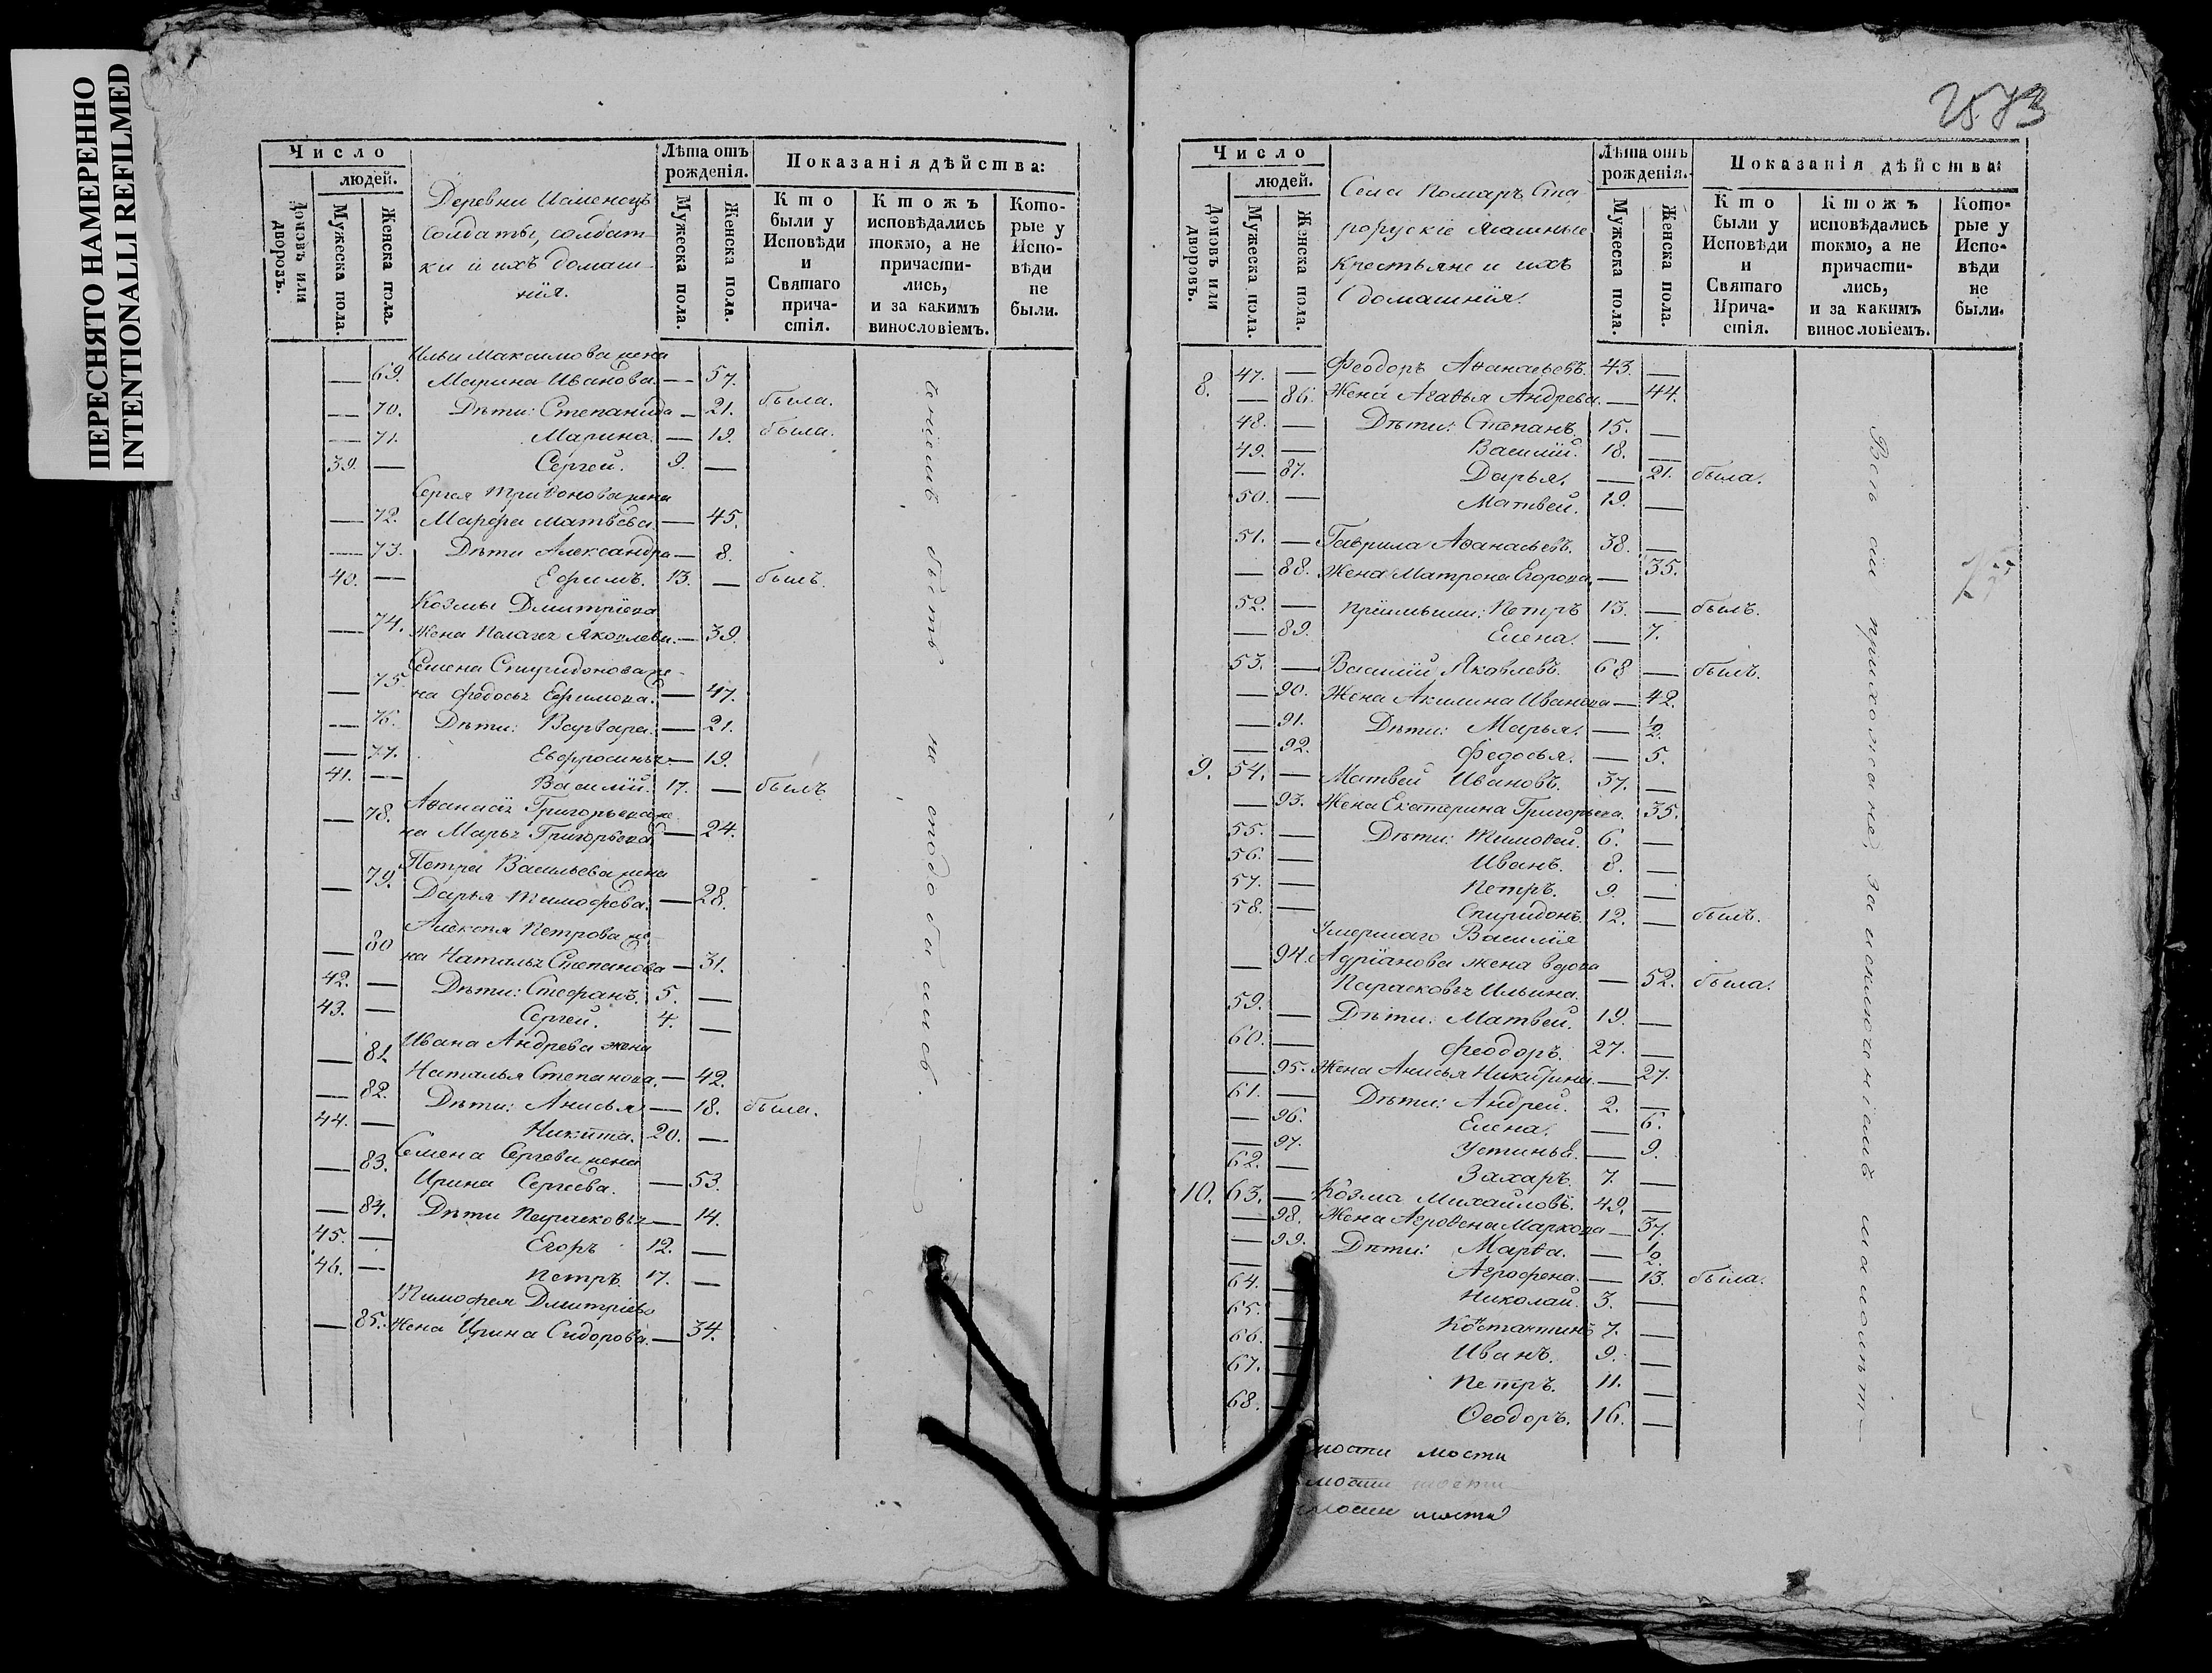 ПЕРЕСНЯТО НАМЕРЕННО
INTENTIONALLI REFILMED
Число
людей.
Домовъ или дворовъ.
Мужеска пола.
Женска пола.
Деревни
солдаты, солдат-
ки и ихъ домаш-
нія.
Лѣта отъ рожденія.
Мужеска пола.
Женска пола.
Показанія дѣйства:
Кто были у Исповѣди и Святаго причастія.
Ктожъ исповѣдались токмо, а не причасти-лись, и за какимъ винословіемъ.
Кото-рые у Испо-вѣди не были.
Ильи Максимова жена
— 69. Марина Иванова. — 57.
— 70. Дѣти: Степанида — 21. была.
— 71. Марина. — 19. была.
39. — Сергей. 9. —
Сергея Триѳонова жена
— 72. Марѳа Матвѣева. — 45.
— 73. Дѣти Александра — 8.
40. — Ефимъ. 13. — былъ.
Козмы Дмитріева
— 74. жена Пелагея Яковлева. — 39.
Семена Спиридонова же-
— 75. на Федосья Ефимова. — 47.
— 76. Дѣти: Варвара. — 21.
— 77. Евфросинья — 19.
41. — Василий. 17. — былъ.
Аѳанасія Григорьева же-
— 78. на Марья Григорьева — 24.
Петра Васильева жена
— 79. Дарья Тимофеева. — 28.
Алексѣя Петрова же-
— 80 на Наталья Степанова — 31.
42. — Дѣти: Стефанъ. 5. —
43. — Сергей. 4. —
Ивана Андреева жена
— 81. Наталья Степанова. — 42.
— 82. Дѣти: Анисья — 18. была.
44. — Никита. 20. —
Семена Сергеева жена
— 83. Ирина Сергеева. — 53.
— 84. Дѣти Парасковья — 14.
45. — Егоръ 12. —
46. — Петръ. 17. —
Тимофея Дмитріева
— 85. жена Ирина Сидорова. — 34.
быть не сподобились.
2573
Число
людей.
Домовъ или дворовъ.
Мужеска пола.
Женска пола.
Села Помаръ Ста
рорускіе Ясашные
Крестьяне и ихъ
домашнія.
Лѣта отъ рожденія.
Мужеска пола.
Женска пола.
Показанія дѣйства:
Кто были у Исповѣди и Святаго Прича-стія.
Ктожъ исповѣдались токмо, а не причасти-лись, и за какимъ винословіемъ.
Кото-рые у Испо-вѣди не были.
8. 47. — Феодоръ Аѳанасьевъ. 43. —
— 86. Жена Агаѳья Андреева. — 44.
48. — Дѣти: Степанъ. 15. —
49. — Василий. 18. —
— 87. Дарья. — 21. была.
50. — Матвей. 19. —
51. — Гаврила Аѳанасьевъ. 38. —
— 88. Жена Матрона Егорова. — 35.
52. — Петръ 13. — былъ.
— 89. Елена. — 7.
53. — Василий Яковлевъ. 68 — былъ.
— 90. Жена Акилина Иванова — 42.
— 91. Дѣти: Марья. — 1/2.
— 92. Федосья. — 5.
9. 54. — Матвей Ивановъ. 37. —
— 93. Жена Екатерина Григорьева. 35.
55. — Дѣти: Тимоѳей. 6. —
56. — Иванъ. 8. —
57. — Петръ. 9. —
58. — Спиридонъ. 12. — былъ.
Умершаго Василія
— 94. Адріанова жена вдова
Парасковья Ильина. — 52. была.
59. — Дѣти: Матвей. 19. —
60. — Феодоръ. 27. —
— 95. Жена Анисья Никитина — 27.
61. — Дѣти: Андрей. 2. —
— 96. Елена. — 6.
— 97. Устинья. — 9.
62. — Захаръ. 7. —
10. 63. — Козма Михайловъ. 49. —
— 98. Жена Агроѳена Маркова — 37.
— 99. Дѣти: Марѳа. — 1/2.
— Агрофена. — 13. была.
64. — Николай. 3. —
65. — Константинъ 7. —
66. — Иванъ. 9. —
67. — Петръ. 11. —
68. — Ѳеодоръ. 16. —
Всѣ сіи прихожане, за исключеніемъ малолѣт—
мости мости
мости мости
мости мости